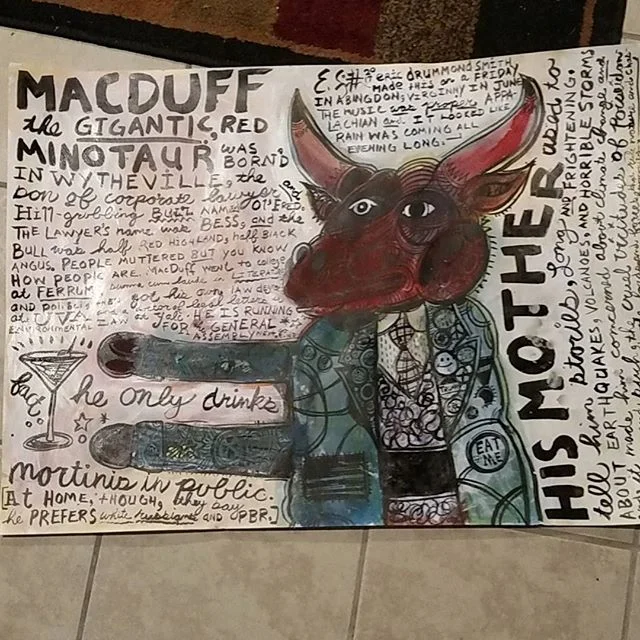 MACDUFF
the GIGANTIC, RED
MINOTAUR was
BORN'D
IN WYTHEVILLE, the
son of corporate lawyer and
Hill-grubbing BULL NAMED
THE LAWYER'S name was BESS, and the
BULL was half RED HIGHLAND, half BLACK
ANGUS. PEOPLE MUTTERED BUT you KNOW
HOW PEOPLE ARE. MacDuff WENT to college
at FERRUM
and
got his own LAW
at UVA and a
ENVIRONMENTAL LAW at Yale. HE IS RUNNING
FOR GENERAL
ASSEMBLY
he only drinks
martinis in public.
[At HOME, tHOUGH, they say,
he PREFERS white russians and PBR.]
eric DRUMMOND SMITH
MADE THIS on a FRIDAY
IN ABINGDON, VIRGINNY IN JUNE
THE MUSIC was proper APPA-
LACHIAN and IT LOOKED LIKE
RAIN WAS COMING ALL
EVENING LONG.
EAT
ME
HIS MOTHER used to
tell him stories, Long AND FRIGHTENING,
ABOUT EARTHQUAKES, VOLCANOES, and HORRIBLE STORMS
made him concerned about climate change and
the cruel vicissitudes of